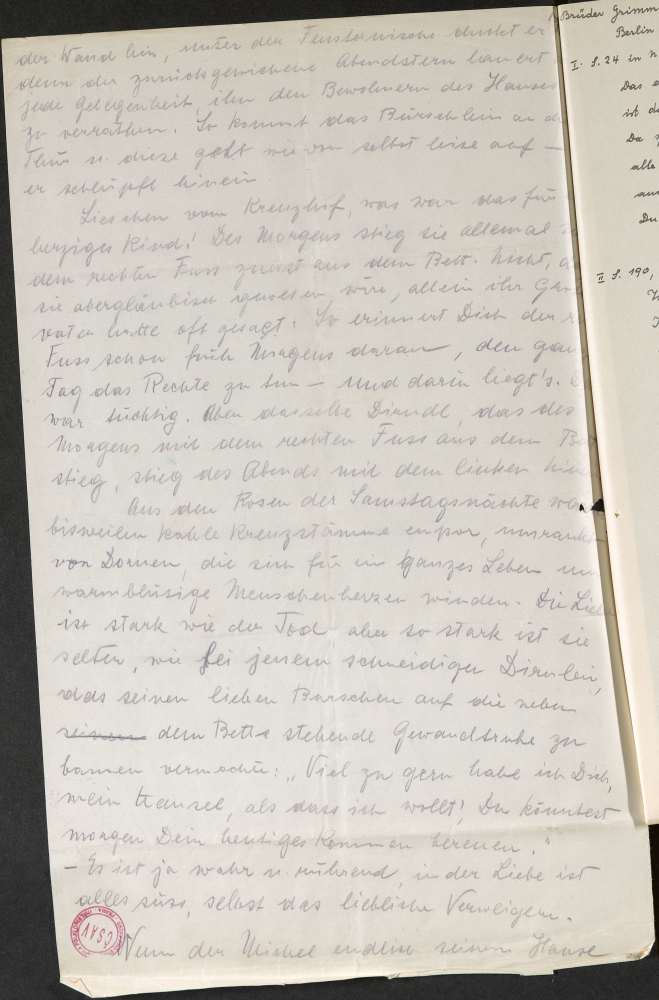 der Wand hin, unter der Fensternische duckt er
denn der zurückgewichene Abendstern lauert
jede Gelegenheit, ihn den Bewohnern des Hauses
zu verrathen. So kommt das Bürschlein an d
Thür u. diese geht wie von selbst leise auf –
er schlüpft hinein
Lieschen vom Kreuzhof, was war das für
herziges Kind! Des Morgens stieg sie allemal
dem rechten Fuss zuerst aus dem Bett. Nicht, d
sie abergläubisch gewesen wäre, allein ihr Gross
vater hatte oft gesagt: So erinnert Dich der r
Fuss schon früh Morgens daran, den gan
Tag das Rechte zu tun – und darin liegt's.
war tüchtig. Aber dasselbe Dirndl, das des
Morgens mit dem rechten Fuss aus dem Be
stieg, stieg des Abends mit dem linken hin
Aus den Rosen der Samstagsnächte wa
bisweilen kahle Kreuzstämme empor, umrankt
von Dornen, die sich für ein ganzes Leben um
warmblütige Menschenherzen winden. Die Liebe
ist stark wie der Tod, aber so stark ist sie
selten, wie bei jenem schneidigen Dirnlein,
das seinen lieben Burschen auf die neben
seinem dem Bette stehende Gewandtruhe zu
bannen vermochte: „Viel zu gern habe ich Dich,
mein Hansel, als dass ich wollt', Du könntest
morgen Dein heutiges Kommen bereuen."
– Es ist ja wahr u. rührend, in der Liebe ist
alles süss, selbst das liebliche Verweigern.
Wenn der Michel endlich seinem Hause
ČSAV
Brüder Grimm
Berlin
I. S. 24 in
Das
ist d
Da
alle
aus
Du
II S. 190,